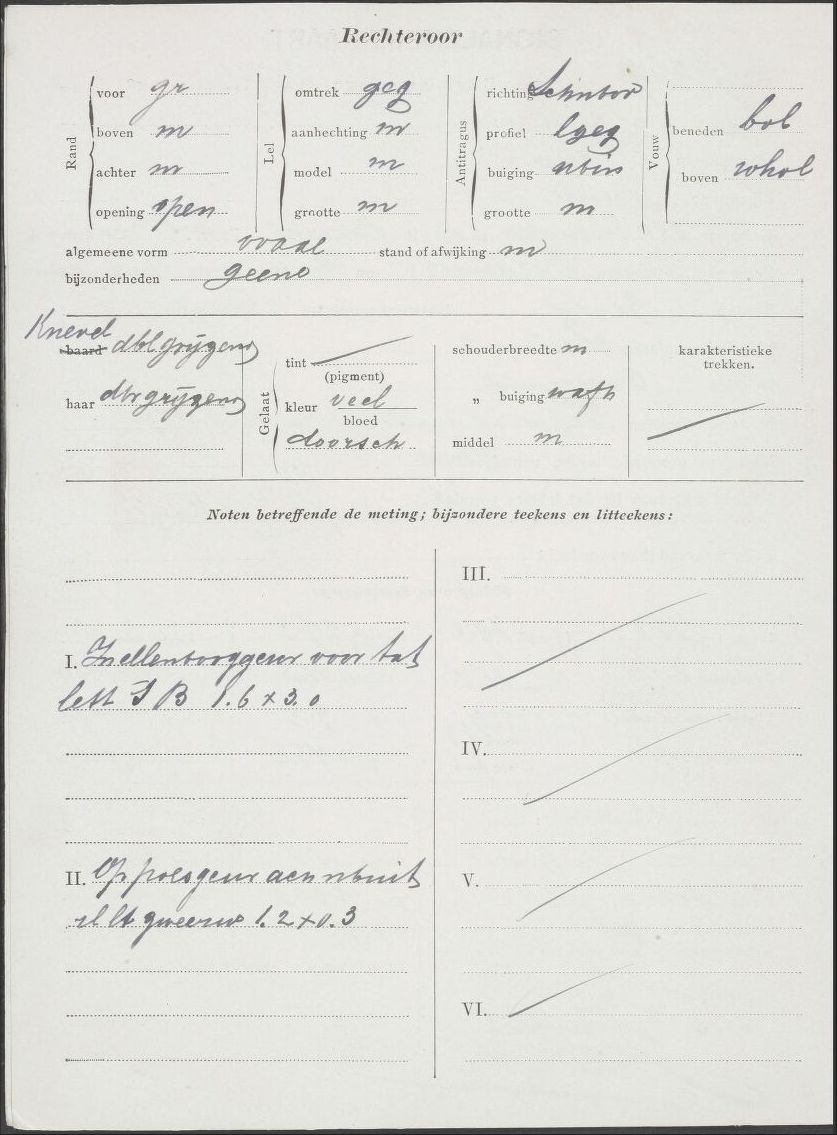 Rechteroor
Rand
voor gr
boven m
achter m
opening open
Lel
omtrek geg
aanhechting m
model m
grootte m
Antitragus
richting
profiel lgeg
buiging nbin
grootte m
Vouw
beneden bol
boven whol
algemeene vorm ovaal stand of afwijking m
bijzonderheden geene
Knevel
baard dblgrijzend
haar dbrgrijzend
Gelaat
tint
(pigment)
kleur veel
bloed
doorsch
schouderbreedte m
„ buiging wafh
middel m
karakteristieke
trekken.
Noten betreffende de meting; bijzondere teekens en litteekens:
I. In ellenboog geur voor tat
lett B 1.6 x 3.0
II. Op pols geur acn nbuit
1.2 x 0.3
III.
IV.
V.
VI.